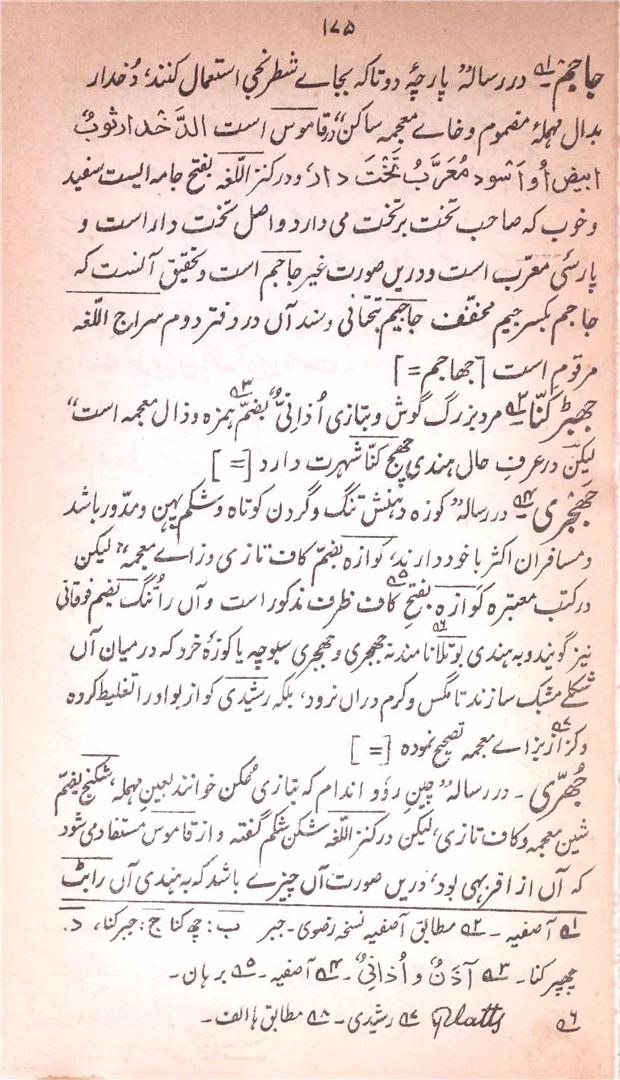 ۱۷۵
جاجم۱؎۔ در رسالہ "پارچۂ دوتا کہ بجاے شطرنجی استعمال کنند، دُخدار
بدال مہملۂ مضموم و خاے معجمہ ساکن" در قاموس است الدَّخْدارثوبٌ
ابیض اَو اَسْود مُعَرَّبُ تَخْتَ دار، و در کنز اللغہ بفتح جامہ ایست سفید
و خوب کہ صاحب تخت بر تخت می دارد و اصل تخت دار است و
پارسیٔ معرّب است و دریں صورت غیر جاجم است و تحقیق آنست کہ
جاجم بکسر جیم مخفّف جاجیم بتحتانی و سند آں در دفتر دوم سراج اللّغہ
مرقوم است [جھاجم=]
جھبڑ کنّا۲؎۔ مرد بزرگ گوش و بتازی اُذانیٌّ۳؎ "بضمِّ ہمزہ و ذال معجمہ است"
لیکن در عرفِ حال ہندی چھج کنّا شہرت دارد [=]
جھجری۴؎۔ در رسالہ "کوزہ دہنش تنگ و گردن کوتاہ و شکم پہن و مدوّر باشد
و مسافراں اکثر با خود دارند، کوازہ بضمِّ کاف تازی و زاے معجمہ"، لیکن
در کتب معتبرہ کوازہ بفتح۵؎ کاف ظرف مذکور است و آں را تُنگ بضم فوقانی
نیز گویند و بہ ہندی بوتلا۶؎ نامند نہ جھجری و جھجری سبوچہ یا کوزۂ خرد کہ درمیان آں
شکلے مشبک سازند تا مگس و کرم دراں نرود، بلکہ رشیدی کواز بواو را تغلیط کردہ
و کزاز۷؎ بزاے معجمہ تصحیح نمودہ [=]
جُھرّی۔ در رسالہ "چینِ رؤو اندام کہ بتازی عُکن خوانند بعینِ مہملہ، شکنج بضمّ
شین معجمہ و کاف تازی، لیکن در کنز اللّغہ شکن شکم گفتہ و از قاموس مستفاد می شود
کہ آں از افر بہی بود، دریں صورت آں چیزے باشد کہ بہ ہندی آں راہٹ
۱؎ آصفیہ۔ ۲؎ مطابق آصفیہ نسخہ رضوی۔ جبر ب: چھ کنا ج: جبر کنا، د۔
چھپر کنا۔ ۳؎ آذَنُ و اُذانیٌ۔ ۴؎ آصفیہ۔ ۵؎ برہان۔
۶؎ Platts ۷؎ رشیدی۔ ۸؎ مطابق ہا الف۔